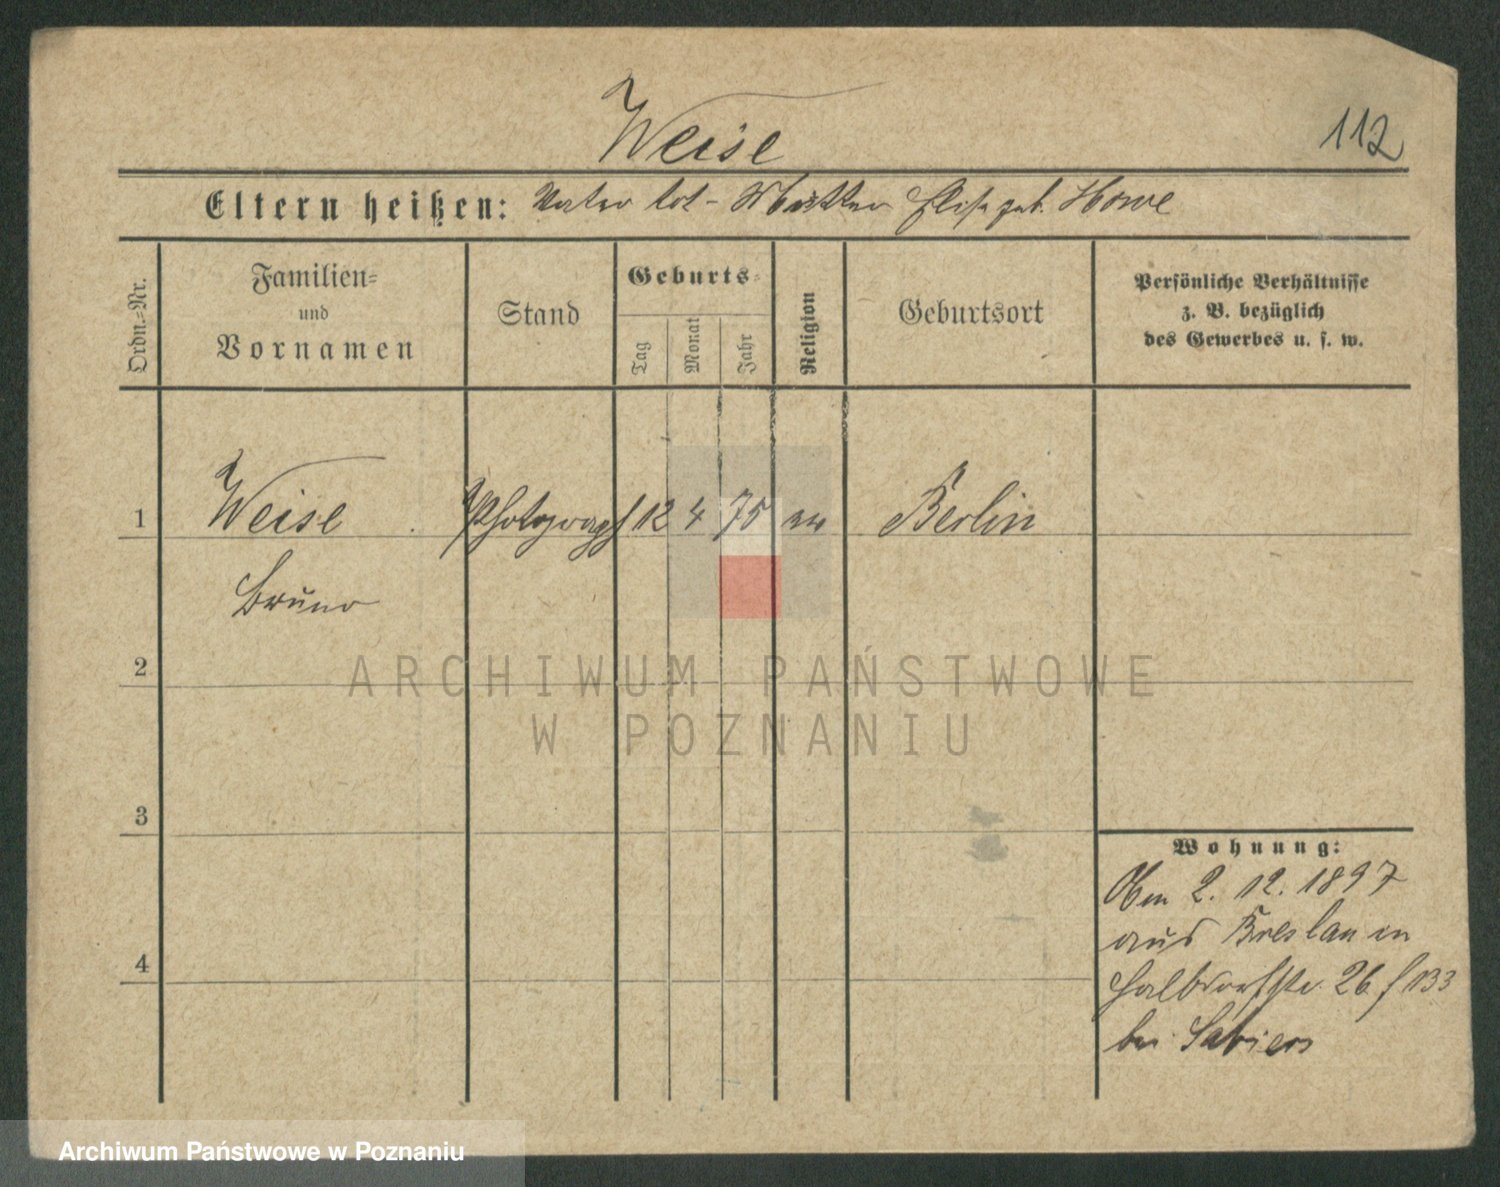 Weise
112
Eltern heißen: Vater tot - Mutter Elise geb. Howe
Ordn.-Nr.
Familien-
und
Vornamen
Stand
Geburts-
Tag
Monat
Jahr
Religion
Geburtsort
Persönliche Verhältnisse
z. B. bezüglich
des Gewerbes u. s. w.
1 Weise Photograph 12 4 75 ev Berlin
Bruno
2
3
4
Wohnung:
2. 12. 1897
aus Breslau in
Halbdorfstr. 26 f 133
bei
ARCHIWUM PAŃSTWOWE
W POZNANIU
Archiwum Państwowe w Poznaniu